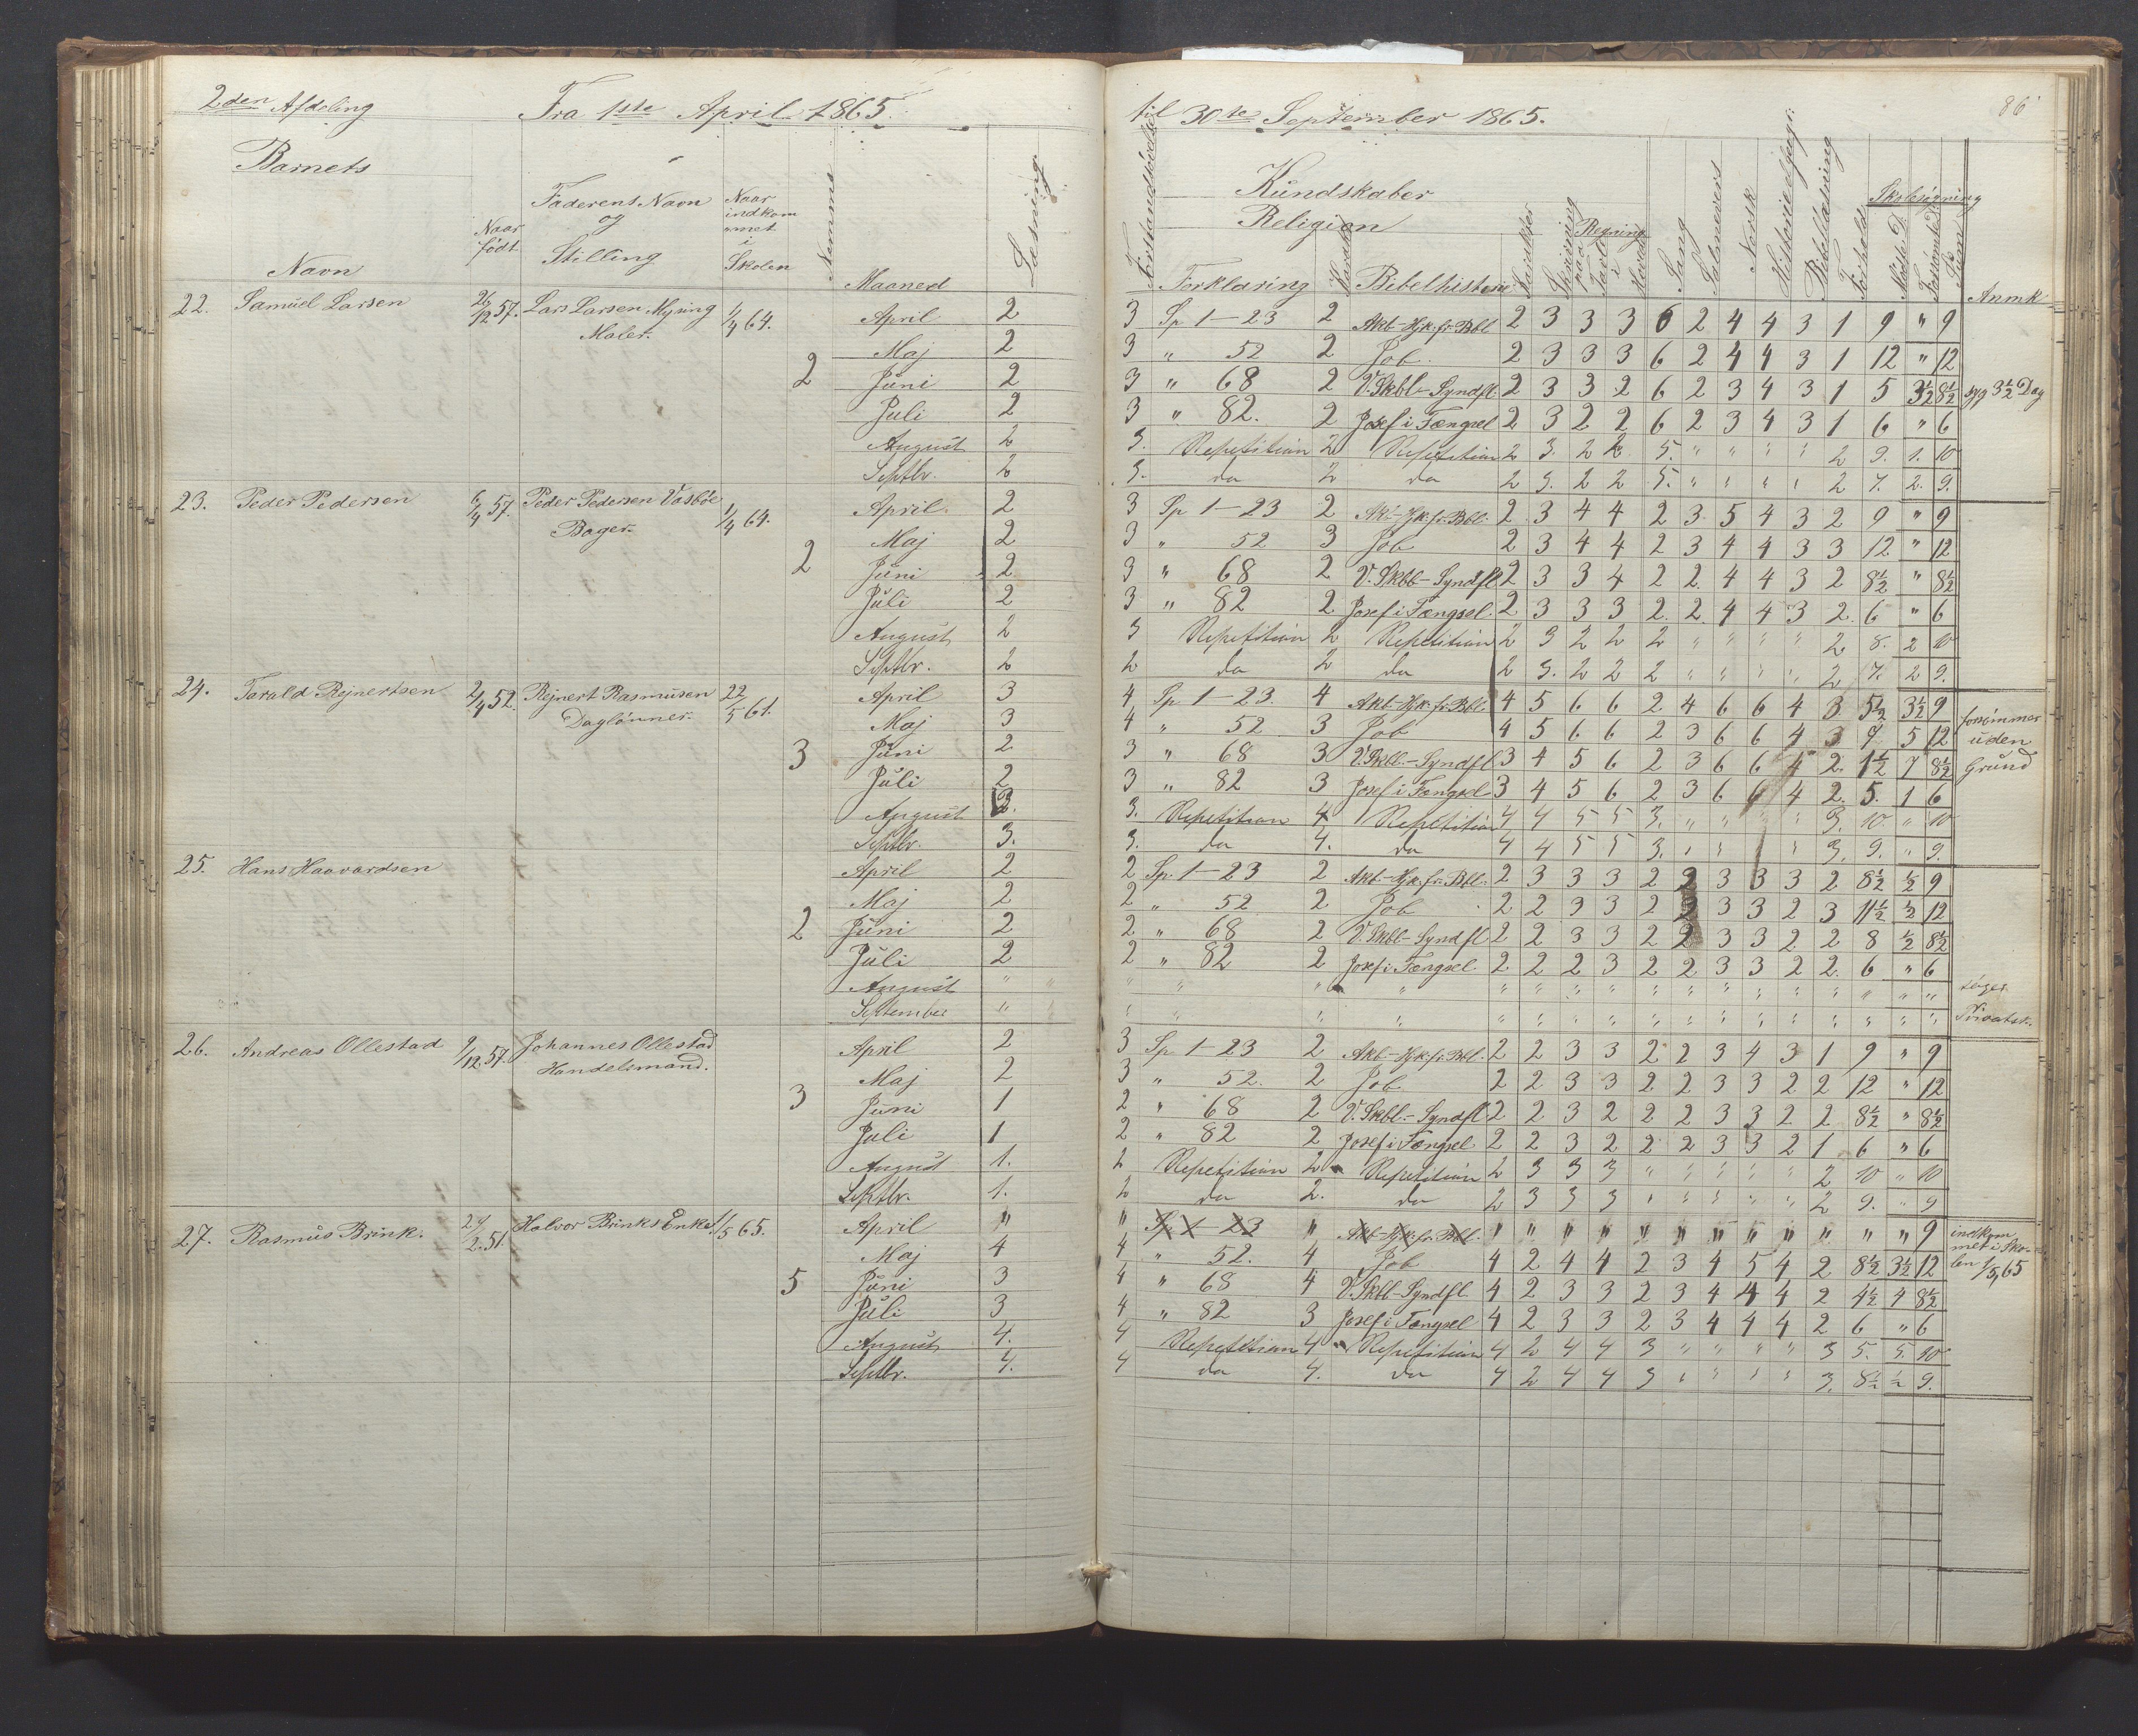 2den Afdeling Fra 1ste April 1865. til 30te September 1865. 86
Barnets Navn Naar født Faderens Navn og Stilling Naar indkommet i Skolen Nemme Maaned Læsning Forstandsøvelse Kundskaber Religion Forklaring Karakt. Bibelhistorie Karakter Skrivning Regning paa Tavle i Hovedet Sang Salmevers Norsk Historie & Geogr. Bibellæsning Forhold Skolesøgning Mødte D. Forsømte D. Sum Anmk
22. Samuel Larsen 26/12 57. Lars Larsen Myning 1/4 64. April 2 3 Sp. 1-23 2 Akt-Hjk. fr. Bbl 2 3 3 3 6 2 4 4 3 1 9 " 9
Maler. Maj 2 3 " 52 2 Job. 2 3 3 3 6 2 4 4 3 1 12 " 12
2 Juni 2 3 " 68 2 V.Skbl-Syndfl. 2 3 3 2 6 2 3 4 3 1 5 3½ 8½ syg 3½ Dag
Juli 2 3 " 82. 2 Josef i Fængsel 2 3 2 2 6 2 3 4 3 1 6 " 6
August 2 3. Repetition 2 Repetition 2 3. 2 2 5. " " " " 2 9. 1. 10
Septbr. 2 3. do 2 do 2 3. 2 2 5. " " " " 2 7. 2. 9.
23. Peder Pedersen 6/4 57. Peder Pedersen Vasbøe 1/4 64. April. 2 3 Sp 1-23 2 Akt-Hjk. fr. Bbl. 2 3 4 4 2 3 5 4 3 2 9 " 9
Bager. Maj 2 3 " 52 3 Job 2 3 4 4 2 3 4 4 3 3 12 " 12
2 Juni 2 3 " 68 2 V.Skbl-Syndfl 2 3 3 4 2 2 4 4 3 2 8½ " 8½
Juli 2 3 " 82 2 Josef i Fængsel. 2 3 3 3 2. 2 4 4 3 2. 6 " 6
August 2 3 Repetition 2 Repetition 2 3 2 2 2 " " " " 2 8. 2 10
Septbr. 2 2 do 2 do 2 3. 2 2 2 " " " " 2 7. 2 9.
24. Torald Rejnertsen 2/4 52. Rejnert Rasmusen 22/5 61. April 3 4 Sp. 1-23. 4 Akt-Hjk. fr. Bbl. 4 5 6 6 2 4 6 6 4 3 5½ 3½ 9 forsømmer
Dagløner. Maj 3 4 " 52 3 Job 4 5 6 6 2 3 6 6 4 3 7 5 12 uden
3 Juni 2 3 " 68 3 V.Skbl.-Syndfl 3 4 5 6 2 3 6 6 4 2. 1½ 7 8½ Grund
Juli 2 3 " 82 3 Josef i Fængsel 3 4 5 6 2 3 6 6 4 2. 5. 1 6
August 3. 3. Repetition 4 Repetition 4 4 5 5 3. " " " " 3. 10. " 10
Septbr. 3. 3. do 4. do 4 4 5 5 3. " " " " 3. 9. " 9.
25. Hans Haavardsen April 2 2 Sp. 1-23 2 Akt-Hjk. fr. Bbl. 2 3 3 3 2 2 3 3 3 2 8½ ½ 9
Maj 2 2 " 52 2 Job 2 2 3 3 2 2 3 3 2 3 11½ ½ 12
2 Juni 2 2 " 68 2 V.Skbl-Syndfl 2 2 3 3 2 2 3 3 2 2 8 ½ 8½
Juli 2 2 " 82 2 Josef i Fængsel 2 2 2 3 2 2 3 3 2 2. 6 " 6
August " " " " " " " " " " " " " " " " " " søger
September " " " " " " " " " " " " " " " " " " Privatsk.
26. Andreas Ollestad 9/12 57. Johannes Ollestad April 2 3 Sp. 1-23 2 Akt-Hjk. fr. Bbl. 2 2 3 3 2 2 3 4 3 1 9 " 9
Handelsmand. Maj 2 3 " 52. 2 Job 2 2 3 3 2 2 3 3 2 2 12 " 12
3 Juni 1 2 " 68 2 V.Skbl.-Syndfl 2 2 3 2 2 2 3 3 2 2 8½ " 8½
Juli 1 2 " 82 2 Josef i Fængsel 2 2 3 2 2 2 3 3 2 1 6 " 6
August 1. 2 Repetition 2 Repetition 2 3 3 3 " " " " " 2 10 " 10
Septbr. 1. 2 do 2. do 2 3 3 3 " " " " " 2 9. " 9
27. Rasmus Brink. 24/2 51. Halvor Brinks Enke 1/5 65. April " " Sp. 1-23 " Akt-Hjk. fr. Bbl. " " " " " " " " " " " " 9 indkom
Maj 4 4 " 52. 4 Job 4 2 4 4 2 3 4 5 4 2 8½ 3½ 12 met i Sko-
5 Juni 3 4 " 68 4 V.Skbl-Syndfl 4 2 3 3 2 3 4 4 4 2 4½ 4 8½ len 1/5 65
Juli 3 4 " 82 3 Josef i Fængsel 4 2 3 3 2 3 4 4 4 2 6 " 6
August 4. 4 Repetition 4 Repetition 4 2 4 4 3 " " " " 3 5. 5. 10
Septbr. 4. 4 do 4. do 4 2 4 4 3 " " " " 3. 8½ ½ 9.